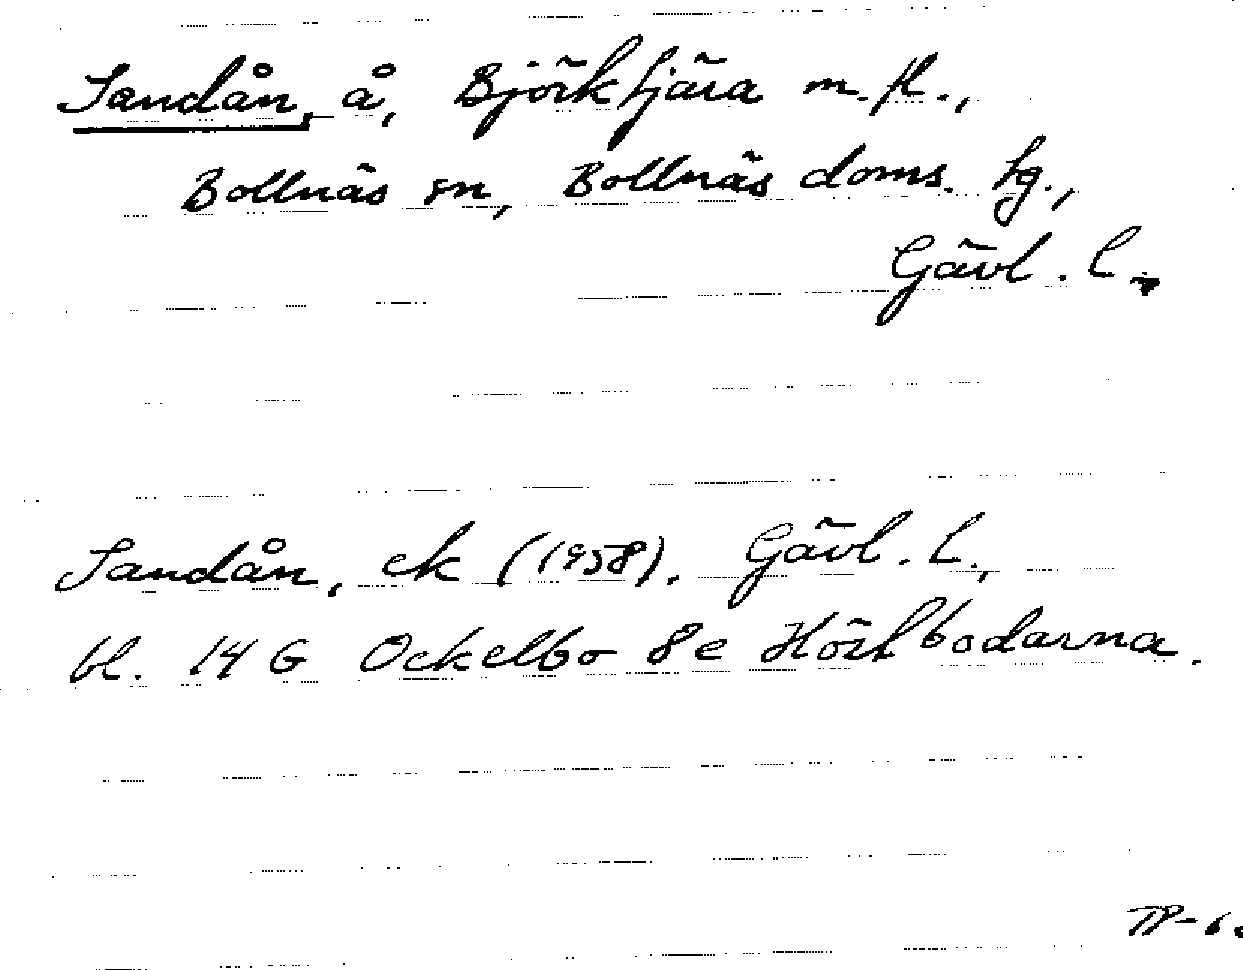 Sandån, å, Björktjära m.fl.,
Bollnäs sn, Bollnäs doms. tg.,
Gävl. l.
Sandån, ek (1958), Gävl. l.,
bl. 14 G Ockelbo 8e Hörlbodarna.